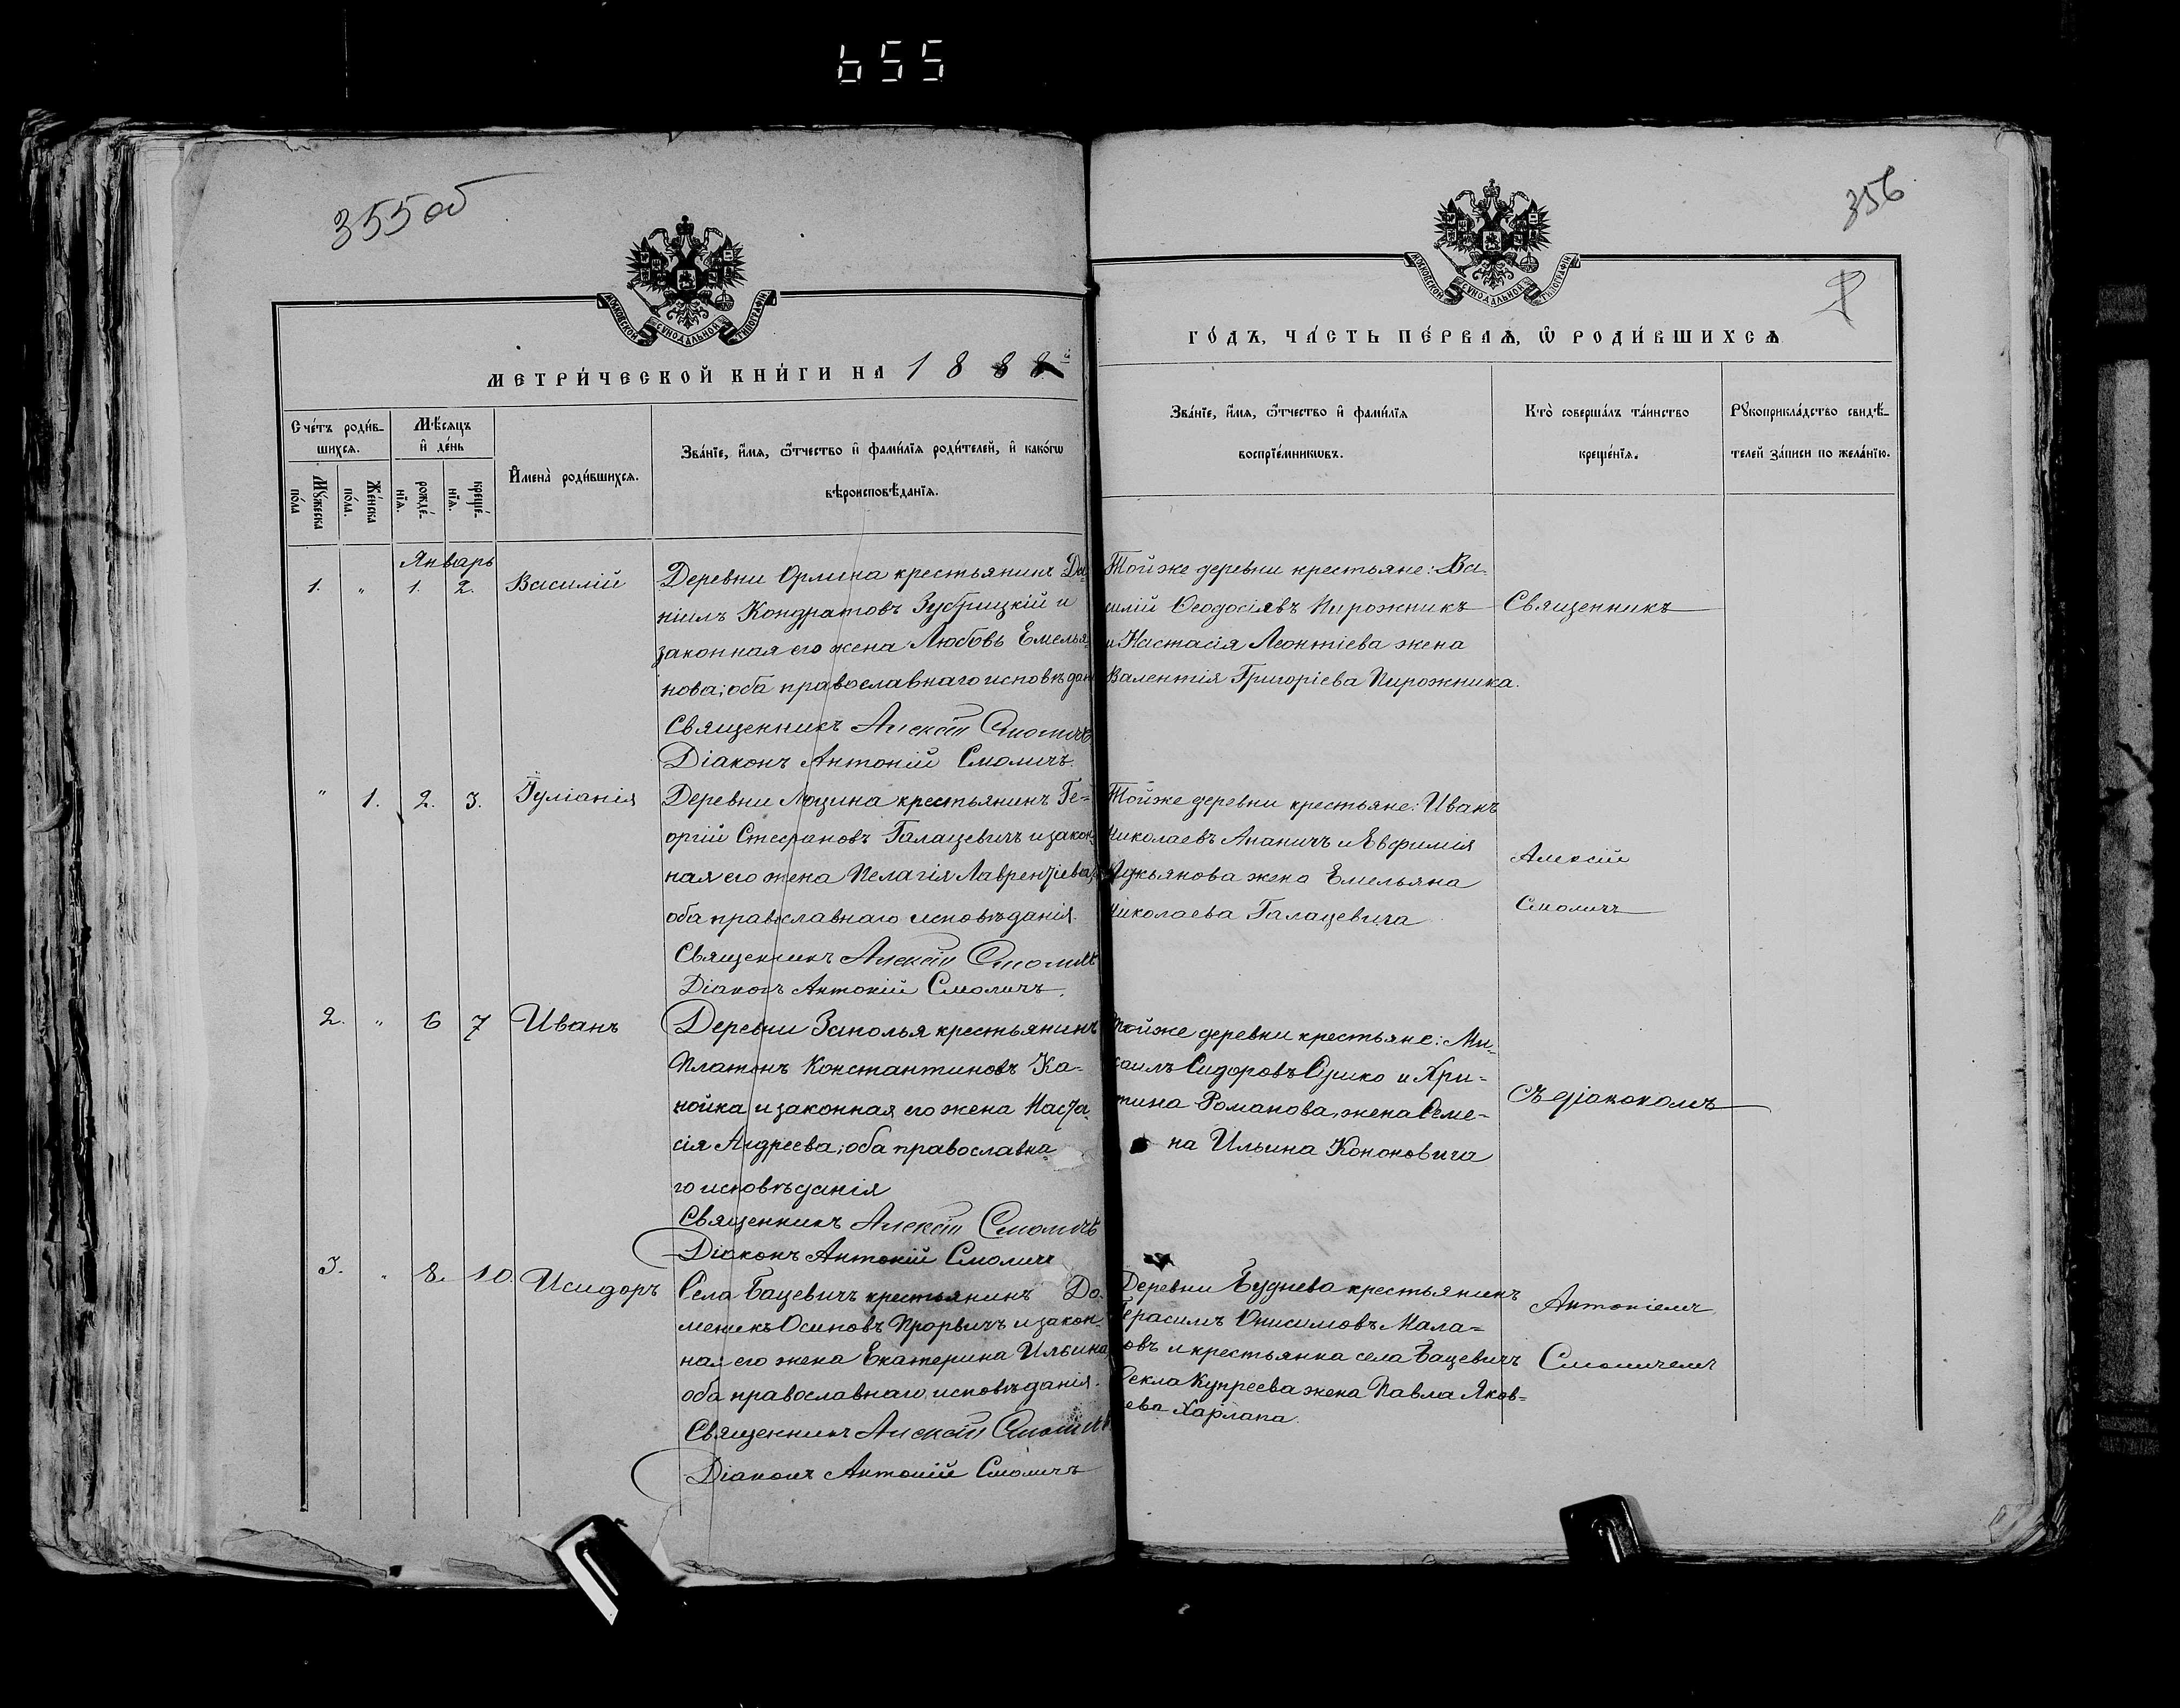 655
355 об
МОСКОВСКОЙ СѴНОДАЛЬНОЙ ТИПОГРАФІИ
МЕТРИ́ЧЕСКОЙ КНИ́ГИ НА 1888
Сче́тъ роди́в-
шихся.
Мѣ́сяцъ
и҆ де́нь
Мꙋ́жеска
по́ла
Же́нска
по́ла.
рожде́-
нїѧ.
креще́-
нїѧ.
И҆мена̀ роди́вшихся.
Зва́нїе, и҆́мѧ, ѻ҆́тчество и҆ фами́лїѧ роди́телей, и҆ како́гѡ
вѣроисповѣ́данїѧ.
Январь
1. " 1. 2. Василій
Деревни Орлина крестьянинъ Да-
ніилъ Кондратовъ Зубрицкій и
законная его жена Любовь Емелья-
нова; оба православнаго исповѣдані
Священникъ Алексій Смоличъ
Діаконъ Антоній Смоличъ.
" 1. 2. 3. Іуліанія
Деревни Лозина крестьянинъ Ге-
оргій Стефановъ Галацевичъ и закон-
ная его жена Пелагія Лаврентіева,
оба православнаго исповѣданія.
Священникъ Алексій Смоличъ
Діаконъ Антоній Смоличъ.
2. " 6 7 Иванъ
Деревни Заполья крестьянинъ
Платонъ Константиновъ Ка-
нойка и законная его жена Наста-
сія Андреева; оба православна-
го исповѣданія
Священникъ Алексій Смоличъ
Діаконъ Антоній Смоличъ
3. " 8. 10. Исидоръ
Села Бацевичъ крестьянинъ До-
меникъ Осиповъ Прорвичъ и закон-
ная его жена Екатерина Ильина,
оба православнаго исповѣданія.
Священникъ Алексій Смоличъ
Діаконъ Антоній Смоличъ
356
МОСКОВСКОЙ СѴНОДАЛЬНОЙ ТИПОГРАФІИ
2
ГО́ДЪ, ЧА́СТЬ ПЕ́РВАѦ, Ѡ҆ РОДИ́ВШИХСѦ
Зва́нїе, и҆́мѧ, ѻ҆́тчество и҆ фами́лїѧ
воспрїе́мникѡвъ.
Кто̀ соверша́лъ та́инство
креще́нїѧ.
Рꙋкоприкла́дство свидѣ́-
телей за́писи по жела́нїю.
Тойже деревни крестьяне: Ва-
силій Ѳеодосіевъ Пирожникъ
и Настасія Леонтіева жена
Валентія Григоріева Пирожника.
Священникъ
Тойже деревни крестьяне: Иванъ
Николаевъ Апаничъ и Евфимія
Лукьянова жена Емельяна
Николаева Галацевича
Алексій
Смоличъ
Тойже деревни крестьяне: Ми-
хаилъ Сидоровъ и Хри-
тина Романова, жена Семе-
на Ильина Кононовича
Съ діакономъ
Деревни Буднева крестьянинъ
Герасимъ Онисимовъ Мала-
овъ и крестьянка села Бацевичъ
Ѳекла Купреева жена Павла Яков-
ева Харлапа.
Антоніемъ
Смоличемъ